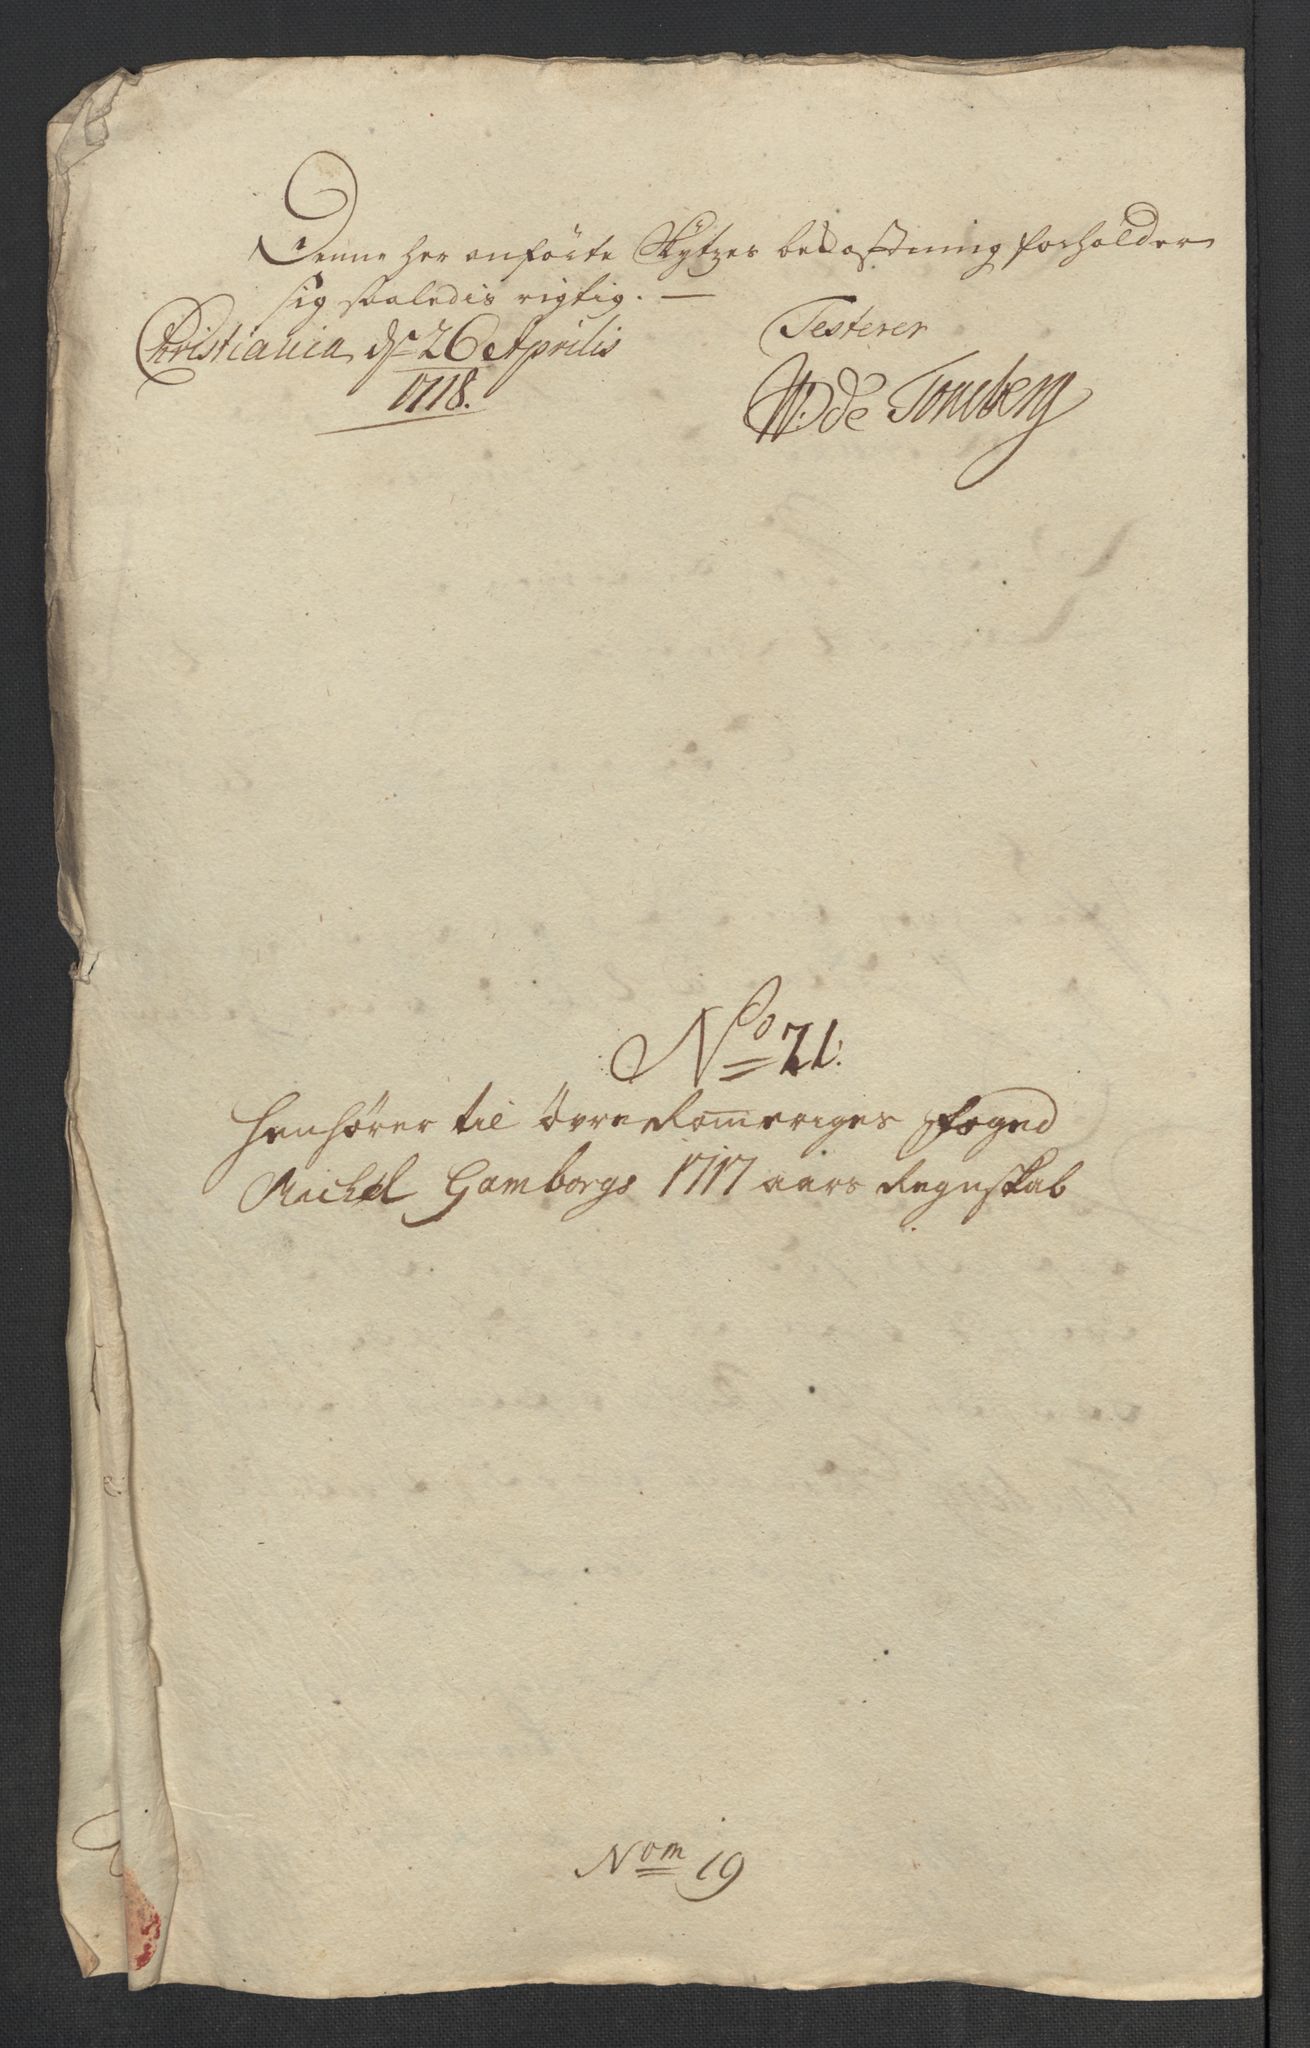 Denne her anförte Skytzes bekostning forholder
sig saaledis rigtig. —
Christiania dn 26 Aprilis
1718.
Testerer
W: de Tonsberg
No 21:
Henhörer til övre Romeriges Foged
Michel Gamborgs 1717 aars Regnskab
Nom 19